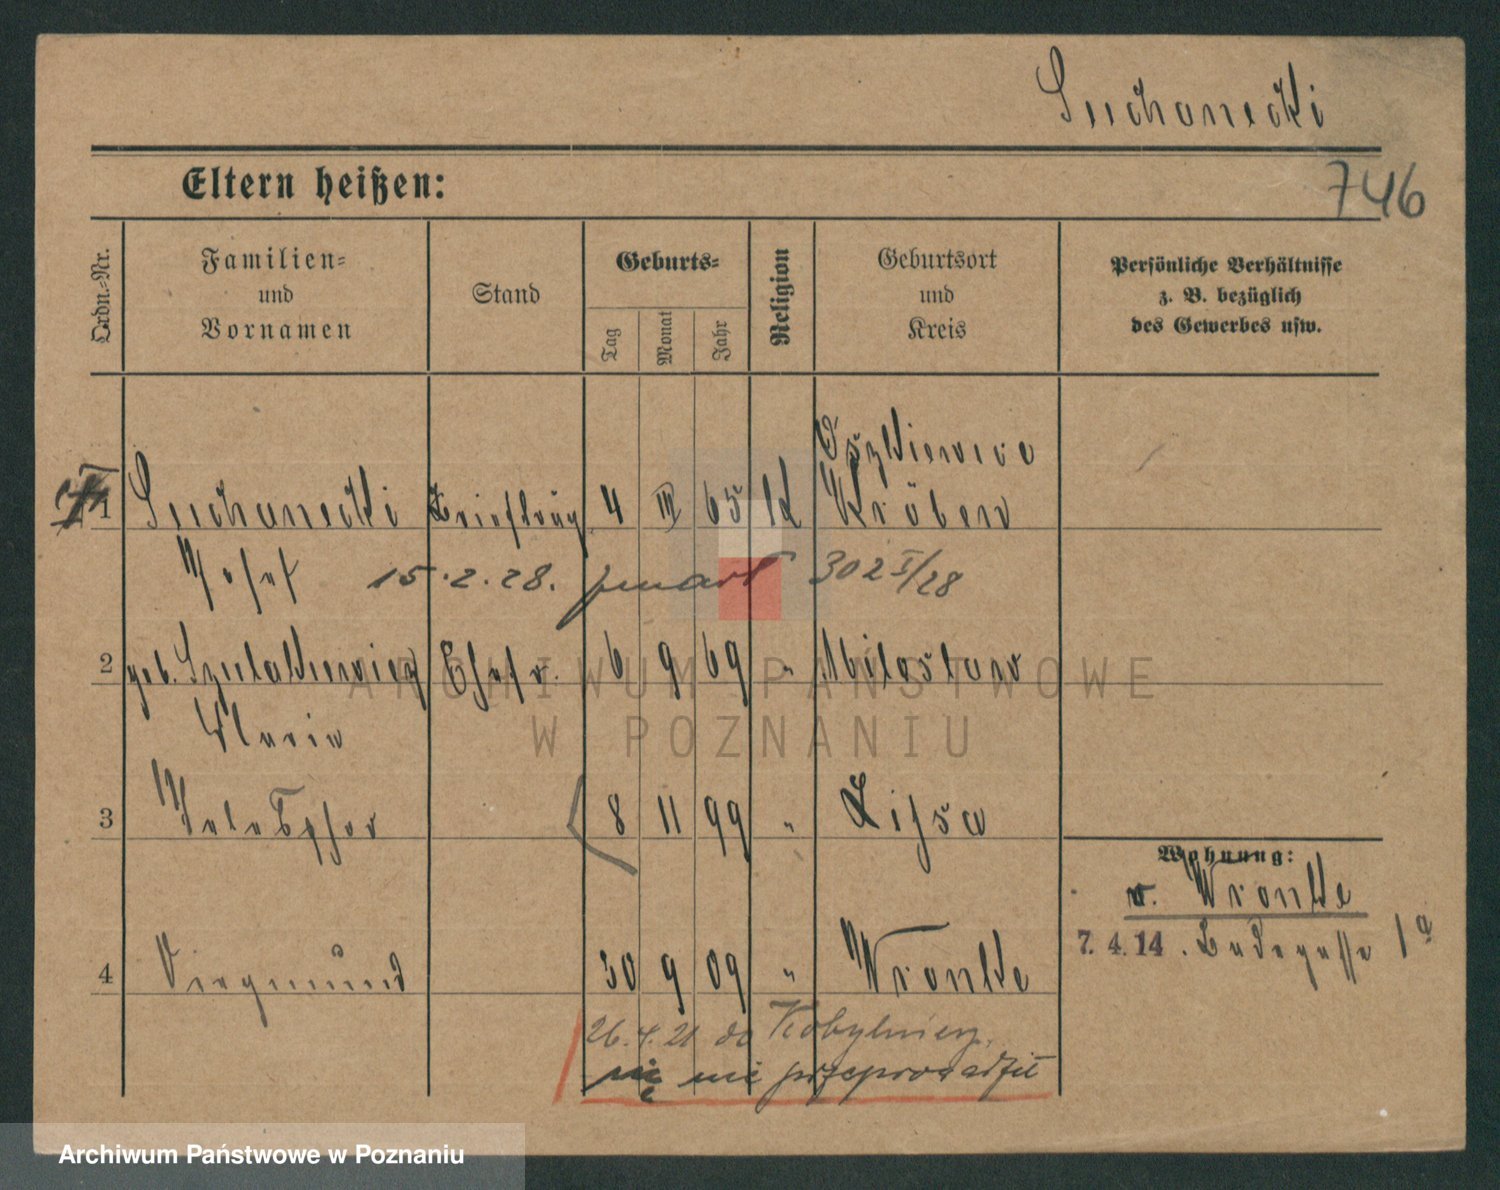 Suchanecki
746
Eltern heißen:
Ordn.-Nr.
Familien-
und
Vornamen
Stand
Geburts-
Tag
Monat
Jahr
Religion
Geburtsort
und
Kreis
Persönliche Verhältnisse
z. B. bezüglich
des Gewerbes usw.
1 Suchanecki Briefträg. 4 III 65 K
Kröben
Josef 15.2.28. zmarł 302 I/28
2 geb. Szulakiewicz Ehefr. 6 9 69 " Miloslaw
Maria
3 Telesphor 8 11 99 " Lissa
Wohnung:
v. Wronke
7. 4. 14 . Budegasse 1a
4 Siegmund 30 9 09 " Wronke
26.4.21 do Kobylnicy,
nie przeprowadził
ARCHIWUM PAŃSTWOWE
W POZNANIU
Archiwum Państwowe w Poznaniu